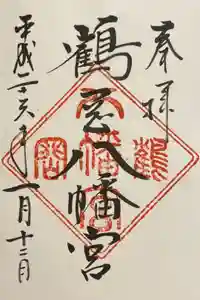 奉拝
鶴谷八幡宮
平成二十六年一月十三日
八幡宮
鶴